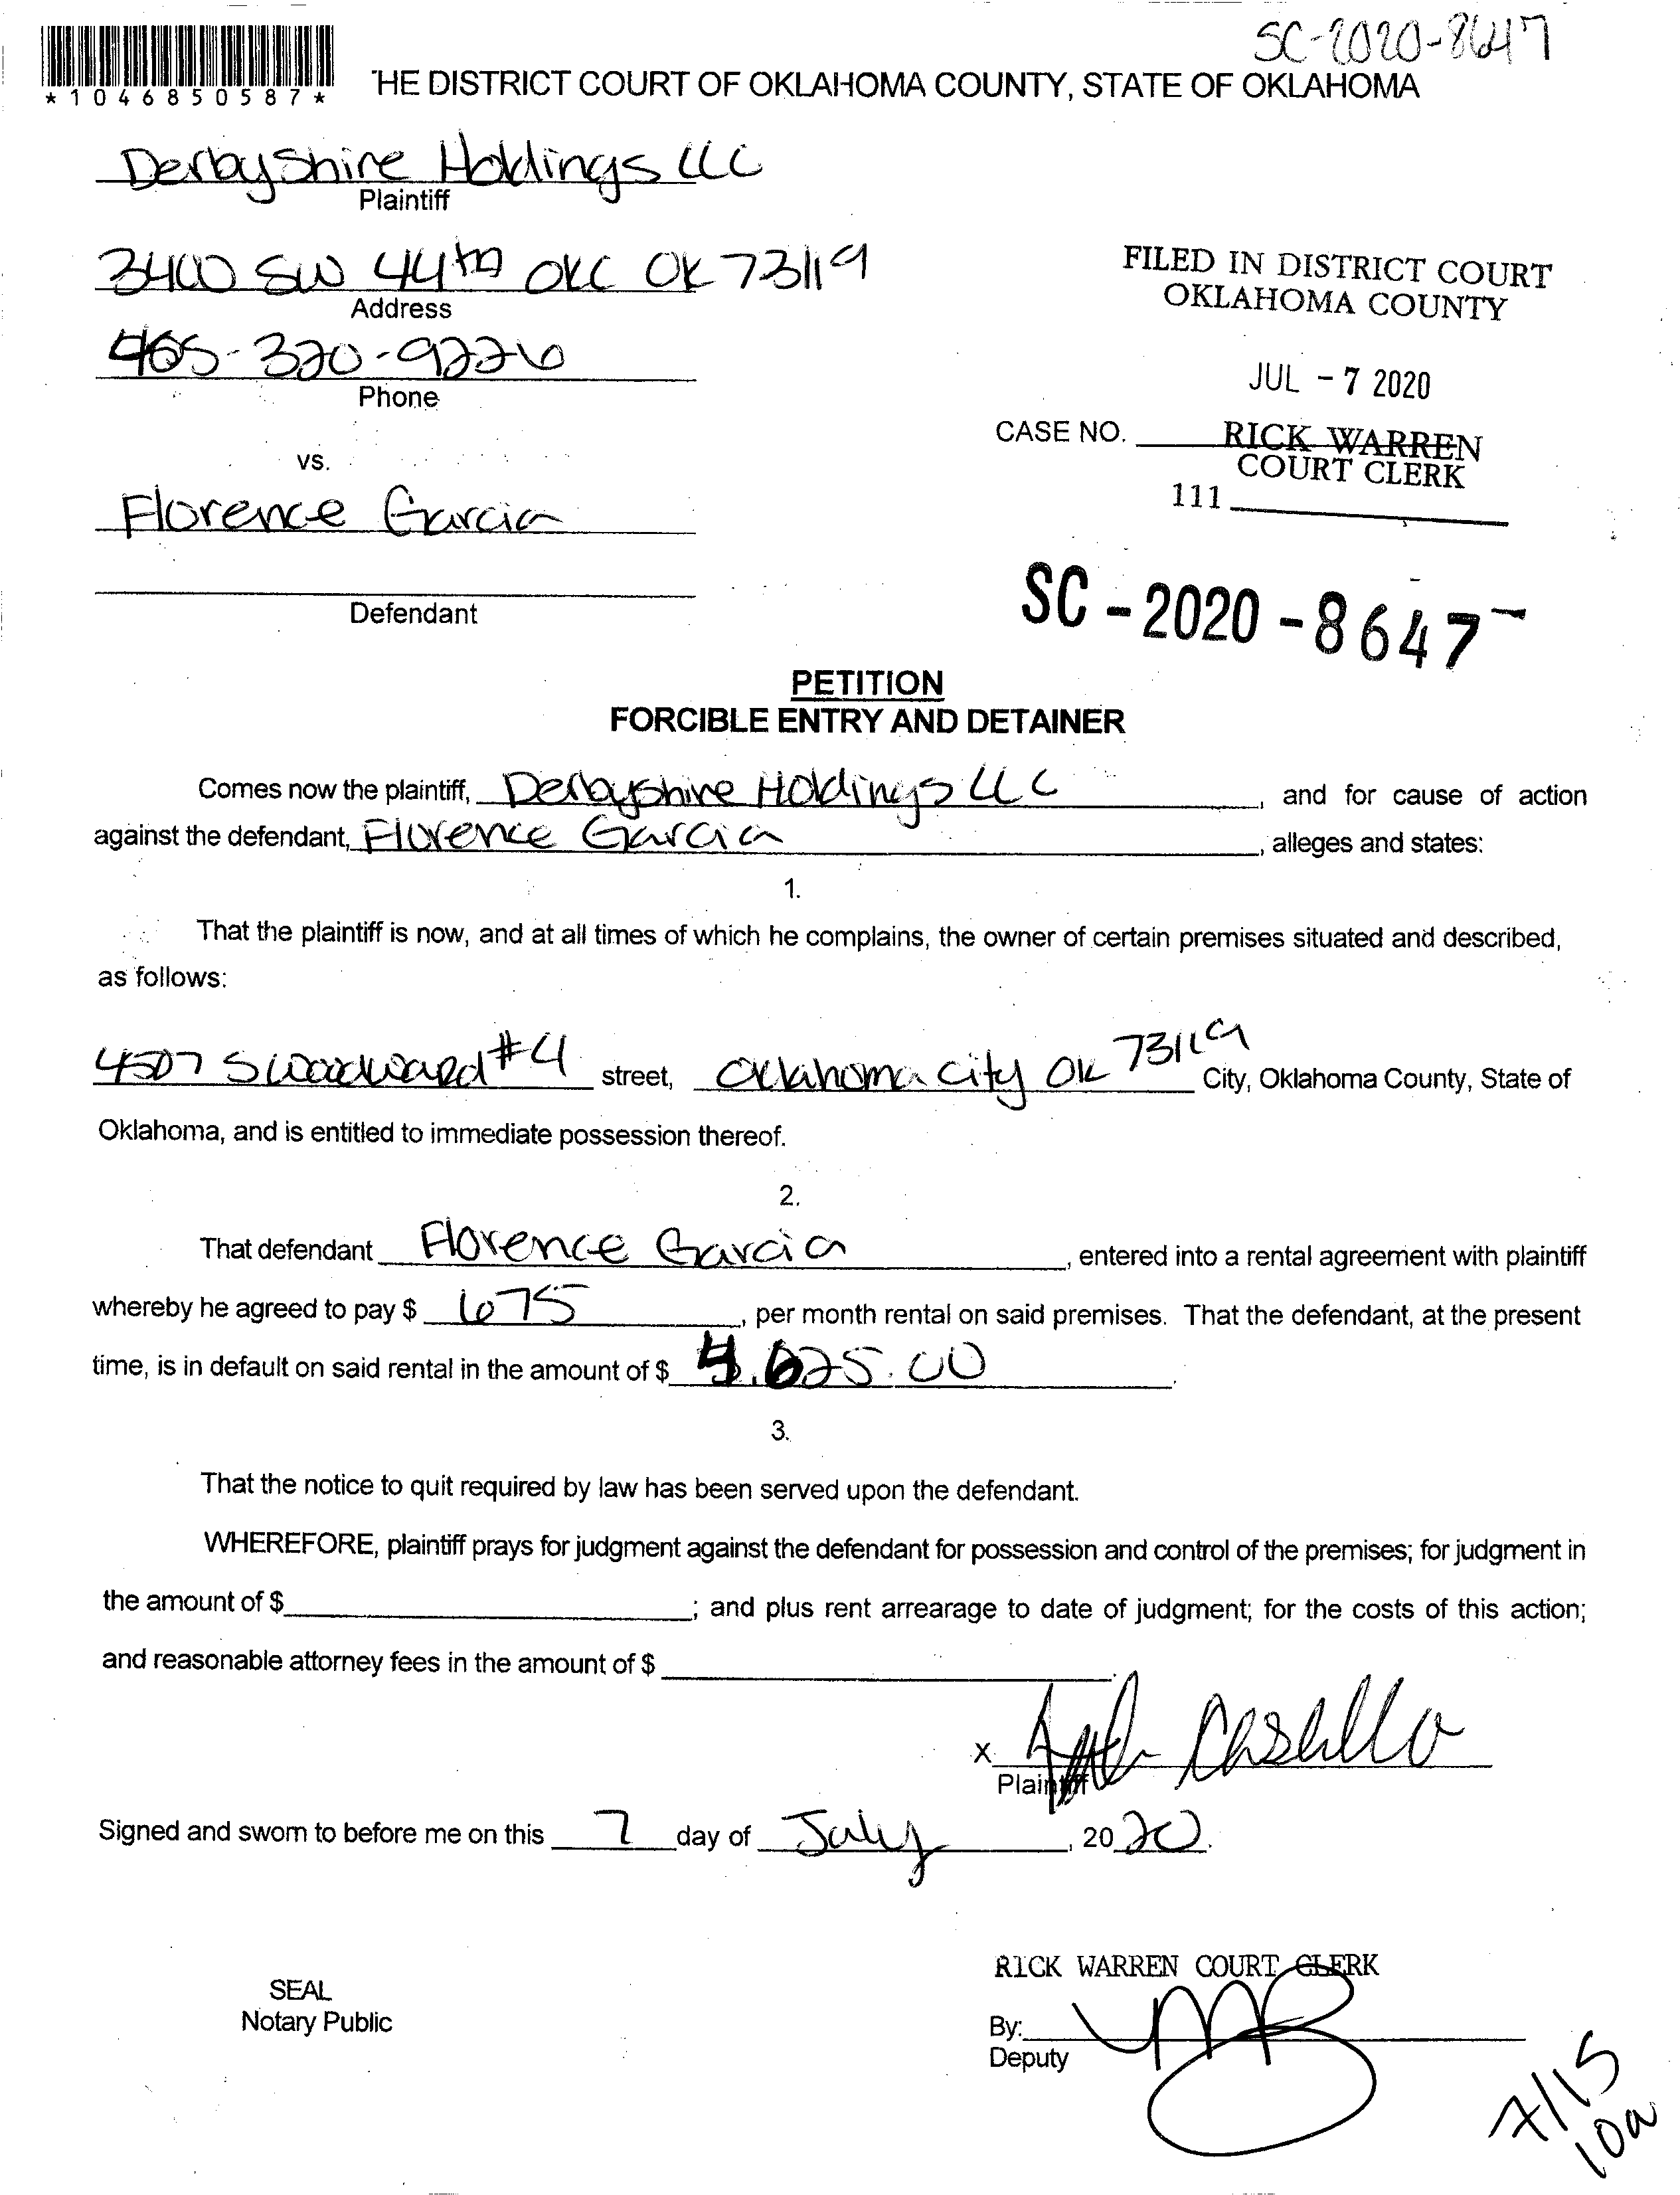 SC-2020-8647
*1046850587*
'HE DISTRICT COURT OF OKLAHOMA COUNTY, STATE OF OKLAHOMA
Derbyshire Holdings LLC
Plaintiff
3400 SW 44th OKC OK 73119
Address
405-320-9226
Phone
FILED IN DISTRICT COURT
OKLAHOMA COUNTY
JUL - 7 2020
CASE NO. RICK WARREN
COURT CLERK
111
vs.
Florence Garcia
Defendant
SC - 2020 - 8647
PETITION
FORCIBLE ENTRY AND DETAINER
Comes now the plaintiff, Derbyshire Holdings LLC, and for cause of action
against the defendant, Florence Garcia, alleges and states:
1.
That the plaintiff is now, and at all times of which he complains, the owner of certain premises situated and described,
as follows:
4507 S Woodward #4 street, Oklahoma City OK 73119 City, Oklahoma County, State of
Oklahoma, and is entitled to immediate possession thereof.
2.
That defendant Florence Garcia, entered into a rental agreement with plaintiff
whereby he agreed to pay $ 675, per month rental on said premises. That the defendant, at the present
time, is in default on said rental in the amount of $ .
3.
That the notice to quit required by law has been served upon the defendant.
WHEREFORE, plaintiff prays for judgment against the defendant for possession and control of the premises; for judgment in
the amount of $ ; and plus rent arrearage to date of judgment; for the costs of this action;
and reasonable attorney fees in the amount of $ .
x
Plaintiff
Signed and sworn to before me on this 7 day of July, 2020.
RICK WARREN COURT CLERK
SEAL
Notary Public
By:
Deputy
7/15
10a